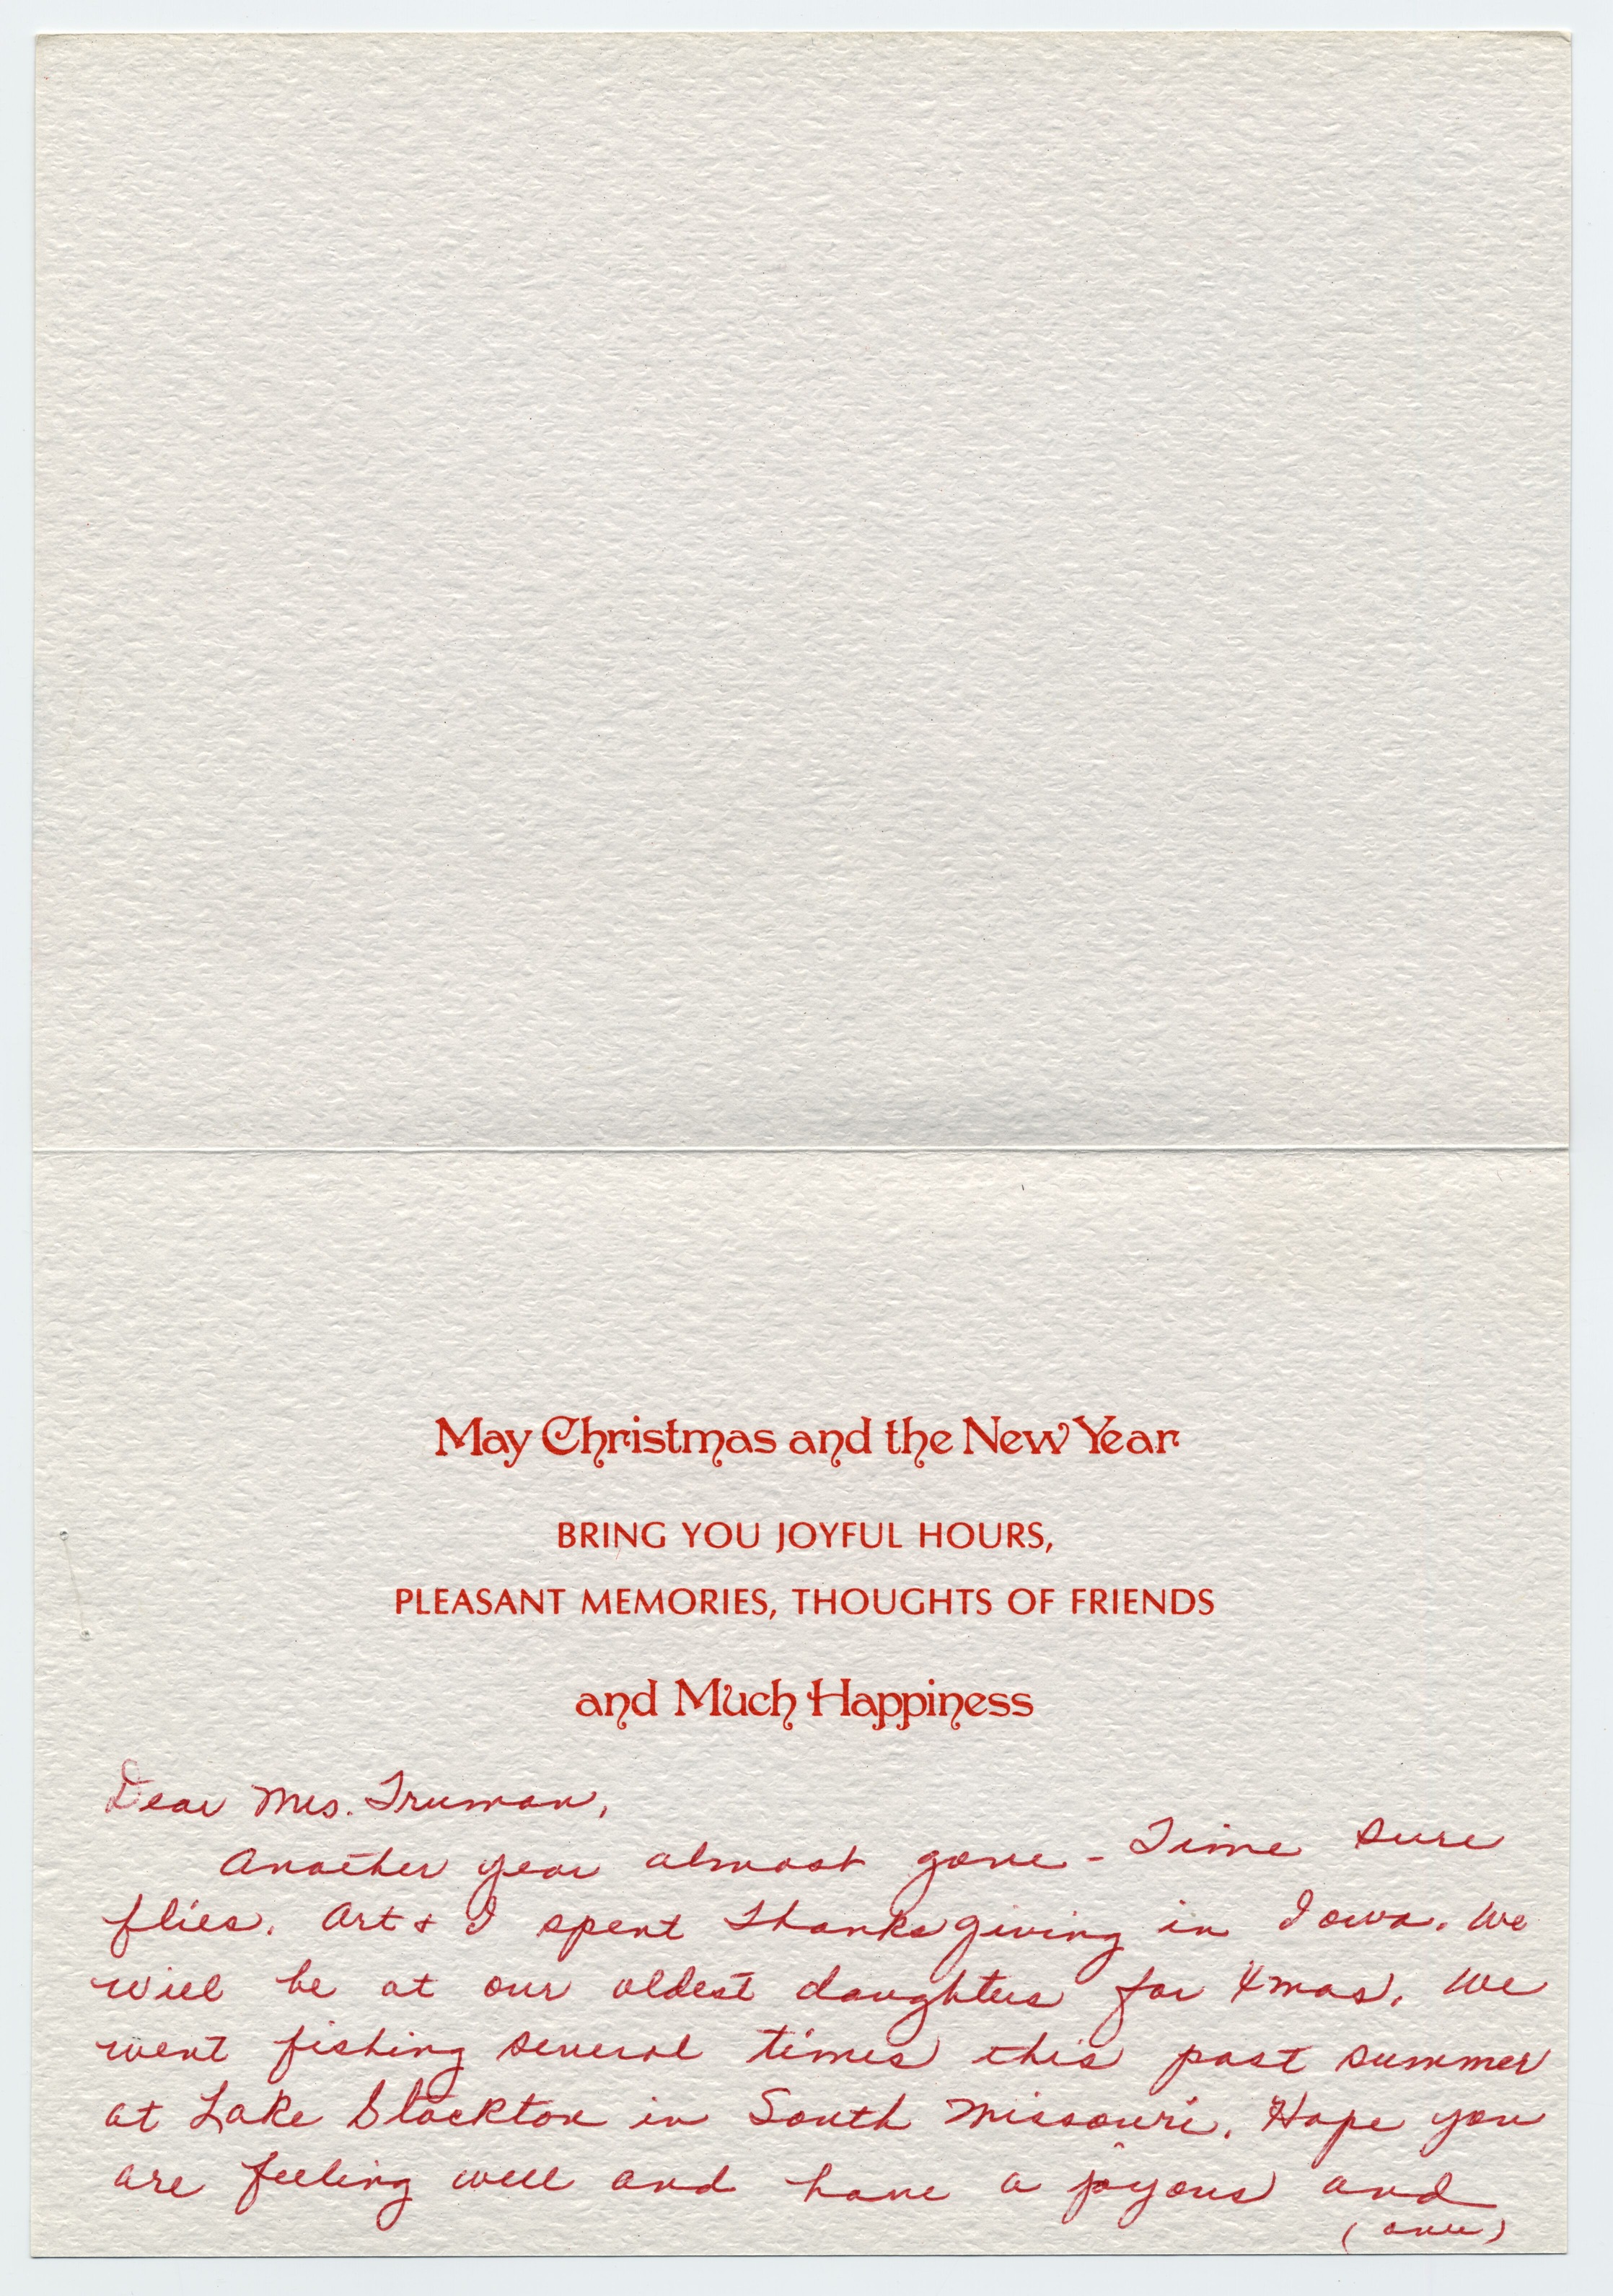 May Christmas and the New Year
BRING YOU JOYFUL HOURS,
PLEASANT MEMORIES, THOUGHTS OF FRIENDS
and Much Happiness
Dear Mrs. Truman,
Another year almost gone - Time sure
flies. Art & I spent Thanksgiving in Iowa. We
will be at our oldest daughters for Xmas. We
went fishing several times this past summer
at Lake Stockton in South Missouri. Hope you
are feeling well and have a joyous and
(over)